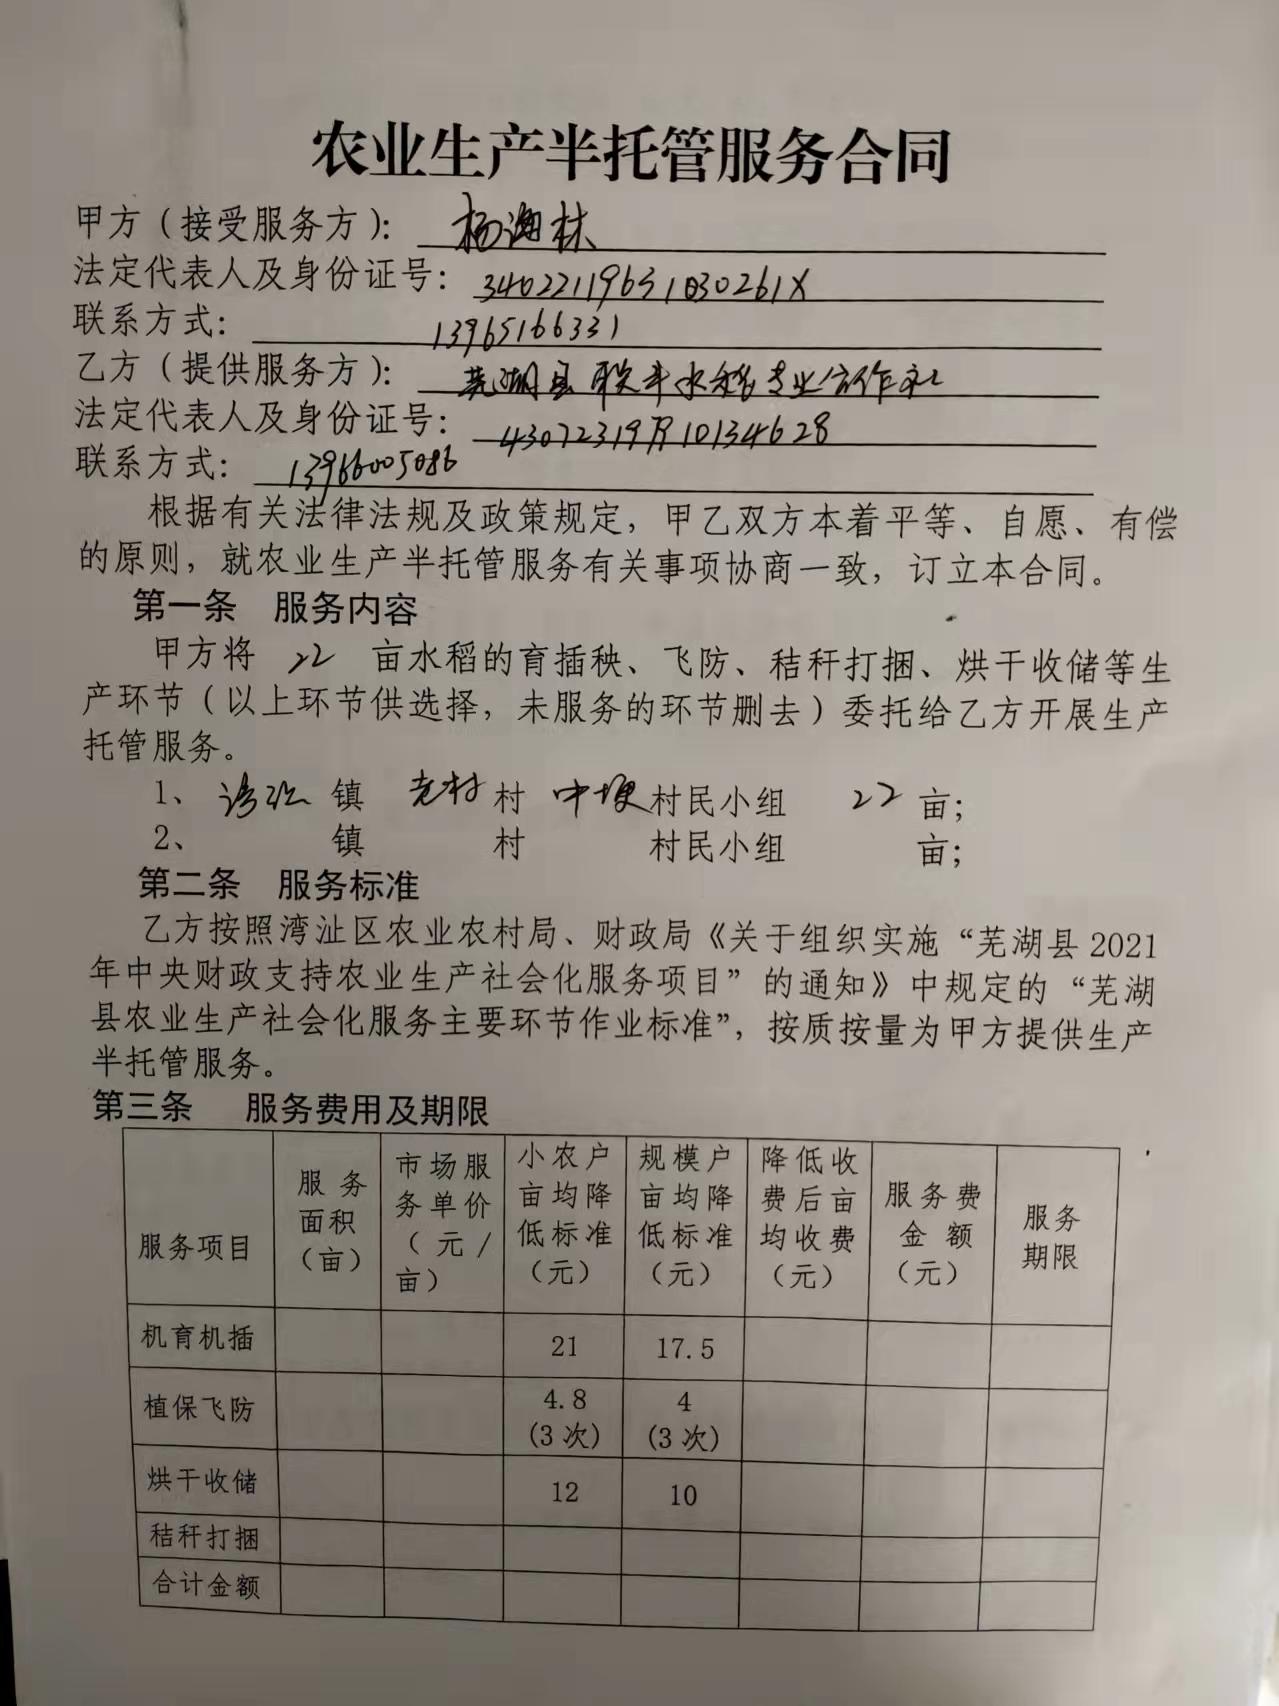 农业生产半托管服务合同
甲方（接受服务方）： 杨海林
法定代表人及身份证号： 34022119651030261X
联系方式： 13965166331
乙方（提供服务方）： 芜湖县联丰水稻专业合作社
法定代表人及身份证号：
联系方式： 13966005086
根据有关法律法规及政策规定，甲乙双方本着平等、自愿、有偿
的原则，就农业生产半托管服务有关事项协商一致，订立本合同。
第一条 服务内容
甲方将 22 亩水稻的育插秧、飞防、秸秆打捆、烘干收储等生
产环节（以上环节供选择，未服务的环节删去）委托给乙方开展生产
托管服务。
1、 镇 老村 村 中埂 村民小组 22 亩；
2、 镇 村 村民小组 亩；
第二条 服务标准
乙方按照湾沚区农业农村局、财政局《关于组织实施“芜湖县2021
年中央财政支持农业生产社会化服务项目”的通知》中规定的“芜湖
县农业生产社会化服务主要环节作业标准”，按质按量为甲方提供生产
半托管服务。
第三条 服务费用及期限
服务项目 服务面积（亩） 市场服务单价（元/亩） 小农户亩均降低标准（元） 规模户亩均降低标准（元） 降低收费后亩均收费（元） 服务费金额（元） 服务期限
机育机插 21 17.5
植保飞防 4.8（3次） 4（3次）
烘干收储 12 10
秸秆打捆
合计金额